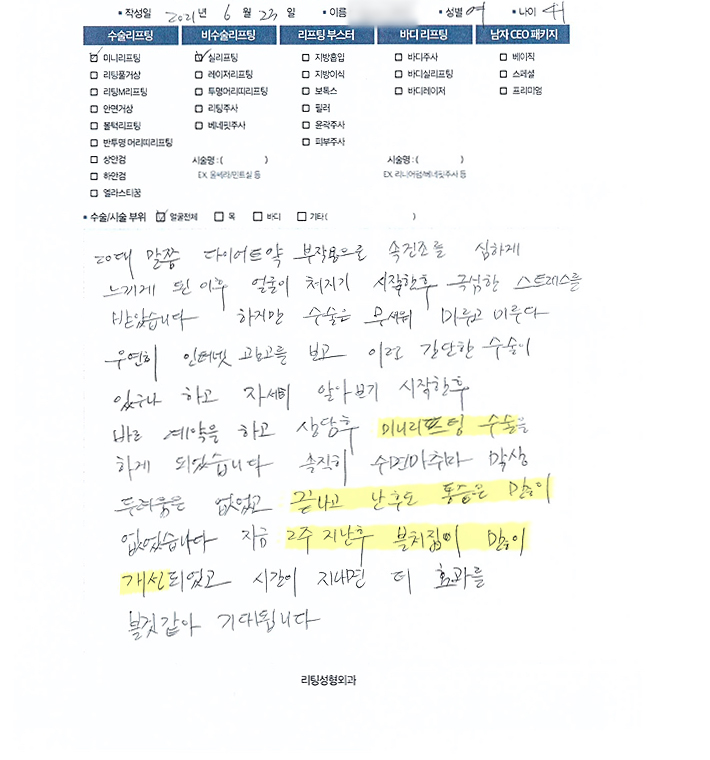 • 작성일 2021년 6월 23일 • 이름 • 성별 여 • 나이 41
수술리프팅 비수술리프팅 리프팅 부스터 바디 리프팅 남자 CEO 패키지
☑ 미니리프팅 ☑ 실리프팅 ☐ 지방흡입 ☐ 바디주사 ☐ 베이직
☐ 리팅풀거상 ☐ 레이저리프팅 ☐ 지방이식 ☐ 바디실리프팅 ☐ 스페셜
☐ 리팅M리프팅 ☐ 투명머리띠리프팅 ☐ 보톡스 ☐ 바디레이저 ☐ 프리미엄
☐ 안면거상 ☐ 리팅주사 ☐ 필러
☐ 볼턱리프팅 ☐ 베네핏주사 ☐ 윤곽주사
☐ 반투명 머리띠리프팅 ☐ 피부주사
☐ 상안검 시술명 : ( ) 시술명 : ( )
☐ 하안검 EX. 울쎄라/민트실 등 EX. 리니어펌/베네핏주사 등
☐ 엘라스티꿈
• 수술/시술 부위 ☑ 얼굴전체 ☐ 목 ☐ 바디 ☐ 기타 ( )
20대 말쯤 다이어트약 부작용으로 속건조를 심하게
느끼게 된 이후 얼굴이 쳐지기 시작한후 극심한 스트레스를
받았습니다 하지만 수술은 무서워 미루고 미루다
우연히 인터넷 광고를 보고 이런 간단한 수술이
있구나 하고 자세히 알아보기 시작한후
바로 예약을 하고 상담후 미니리프팅 수술을
하게 되었습니다 솔직히 수면마취라 막상
두려움은 없었고 끝나고 난후도 통증은 많이
없었습니다 지금 2주 지난후 불처짐이 많이
개선되었고 시간이 지나면 더 효과를
볼것같아 기대됩니다
리팅성형외과